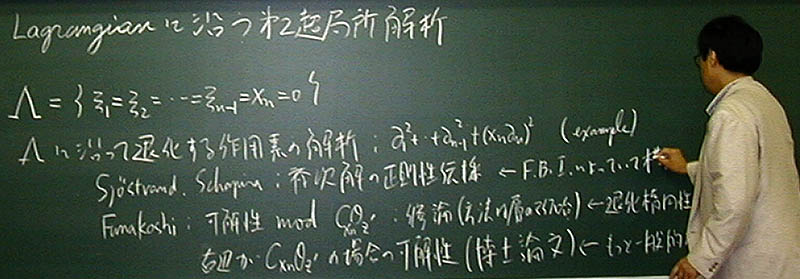 Lagrangian に沿う 第2超局所解析
Λ = { ξ₁ = ξ₂ = ⋯ = ξₙ₋₁ = xₙ = 0 }
Λ に沿って退化する作用素の解析 ; ∂₁²+⋯+∂ₙ₋₁²+(xₙ∂ₙ)² (example)
Sjöstrand, Schapira ; 斉次解の正則性伝播 ← F.B.I. によって
Funakoshi : 可解性 mod ; 修論 ← 退化楕円性
右辺が の場合の可解性 (博士論文) ← もっと一般的